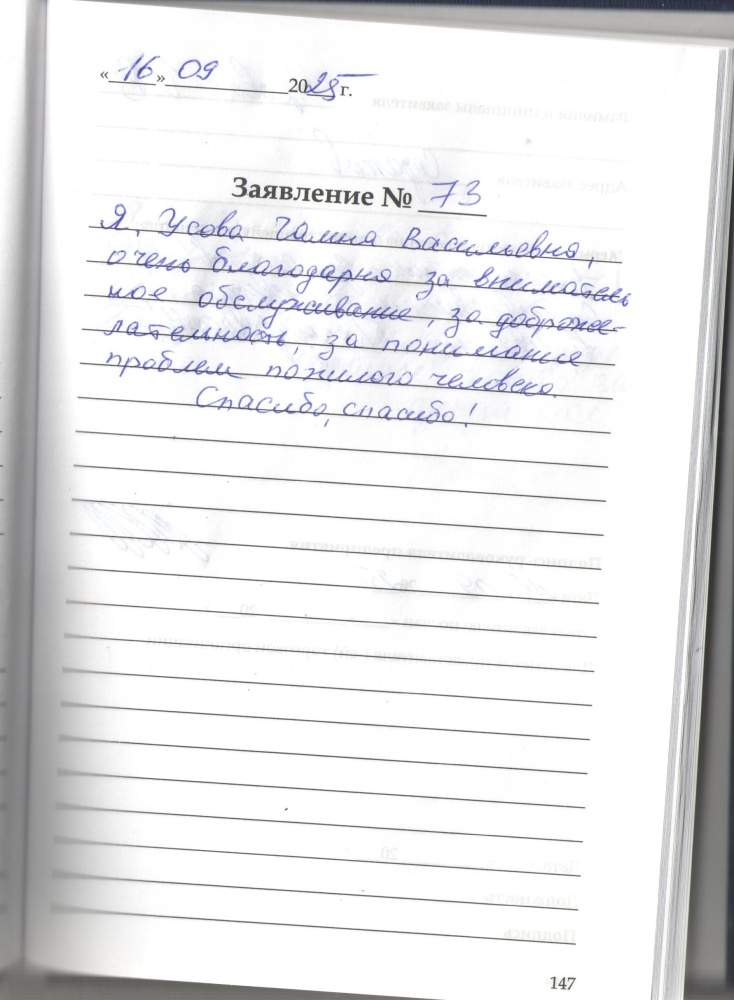 «16» 09 2025 г.
Заявление № 73
Я, Усова Галина Васильевна,
очень благодарна за вниматель
ное обслуживание, за доброже-
лательность, за понимание
проблем пожилого человека.
Спасибо, спасибо!
147